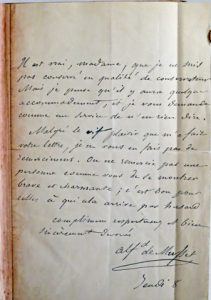 Il est vrai, madame, que je ne suis
pas conservé en qualité de conservateur
Mais je pense qu'il y aura quelque
accommodement, et je vous demande
comme un service de n'en rien dire.
Malgré le vif plaisir que m'a fait
votre lettre, je ne vous en fais pas de
remerciement. On ne remercie pas une
personne comme vous de se montrer
brave et charmante ; c'est bon pour
celles à qui cela arrive par hasard
compliments respectueux et bien
sincèrement dévoués
Alf^d de Musset
Jeudi 8